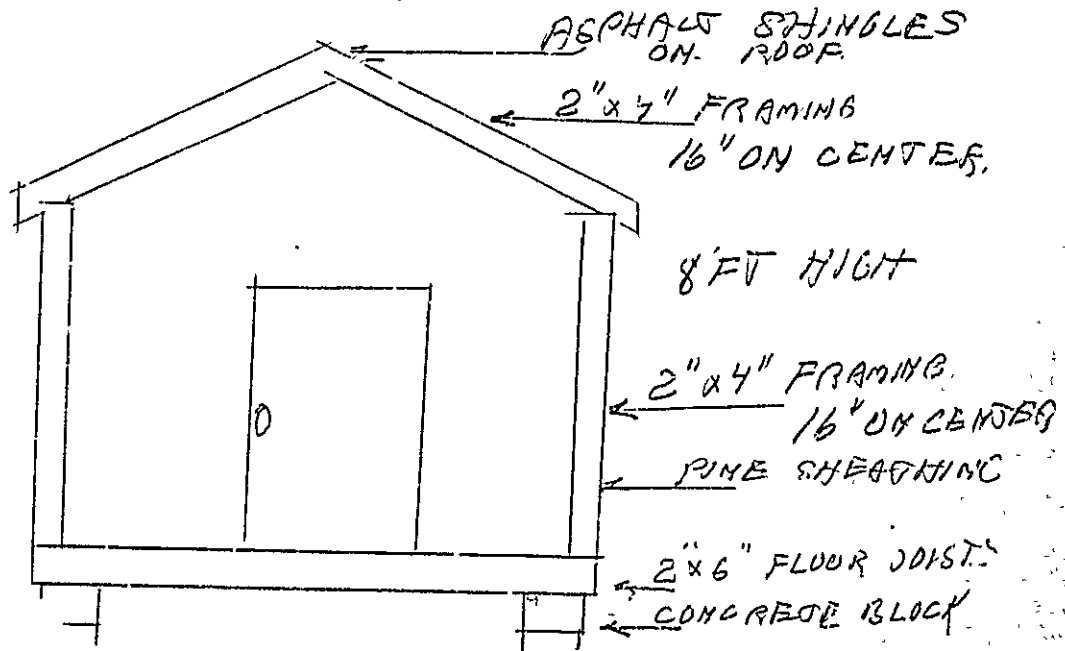 ASPHALT SHINGLES
ON. ROOF.
2"x4" FRAMING
16" ON CENTER.
8'FT HIGH
2"x4" FRAMING.
16" ON CENTER
PINE SHEATHING
2"x6" FLOOR JOISTS
CONCRETE BLOCK